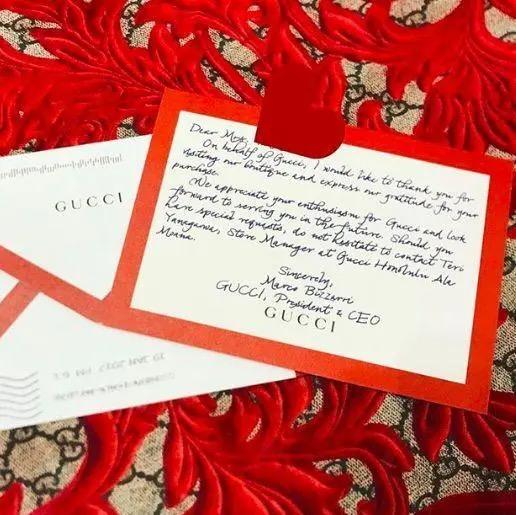 Dear Mrs.
On behalf of Gucci, I would like to thank you for
visiting our boutique and express our gratitude for your
purchase.
We appreciate your enthusiasm for Gucci and look
forward to serving you in the future. Should you
have special requests, do not hesitate to contact Teri
Yanagawa, Store Manager at Gucci Honolulu Ala
Moana.
Sincerely,
Marco Bizzarri
GUCCI, President & CEO
GUCCI
GUCCI